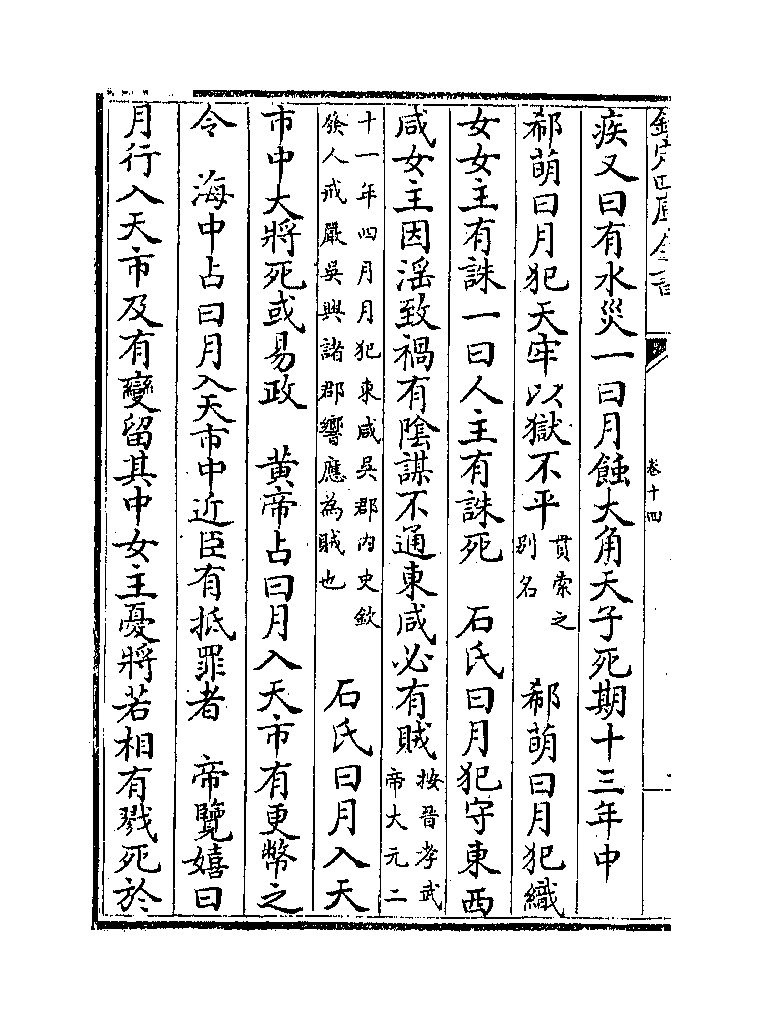 欽定四庫全書
卷十四
疾又曰有水災一曰月蝕大角天子死期十三年中
郗萌曰月犯天牢以獄不平貫索之別名　郗萌曰月犯織
女女主有誅一曰人主有誅死　石氏曰月犯守東西
咸女主因淫致禍有陰謀不通東咸必有賊按晉孝武帝大元二
十一年四月月犯東咸吳郡內史欽發人戒嚴吳興諸郡響應為賊也　石氏曰月入天
市中大將死或易政　黃帝占曰月入天市有更幣之
令　海中占曰月入天市中近臣有抵罪者　帝覽嬉曰
月行入天市及有變留其中女主憂將若相有戮死於